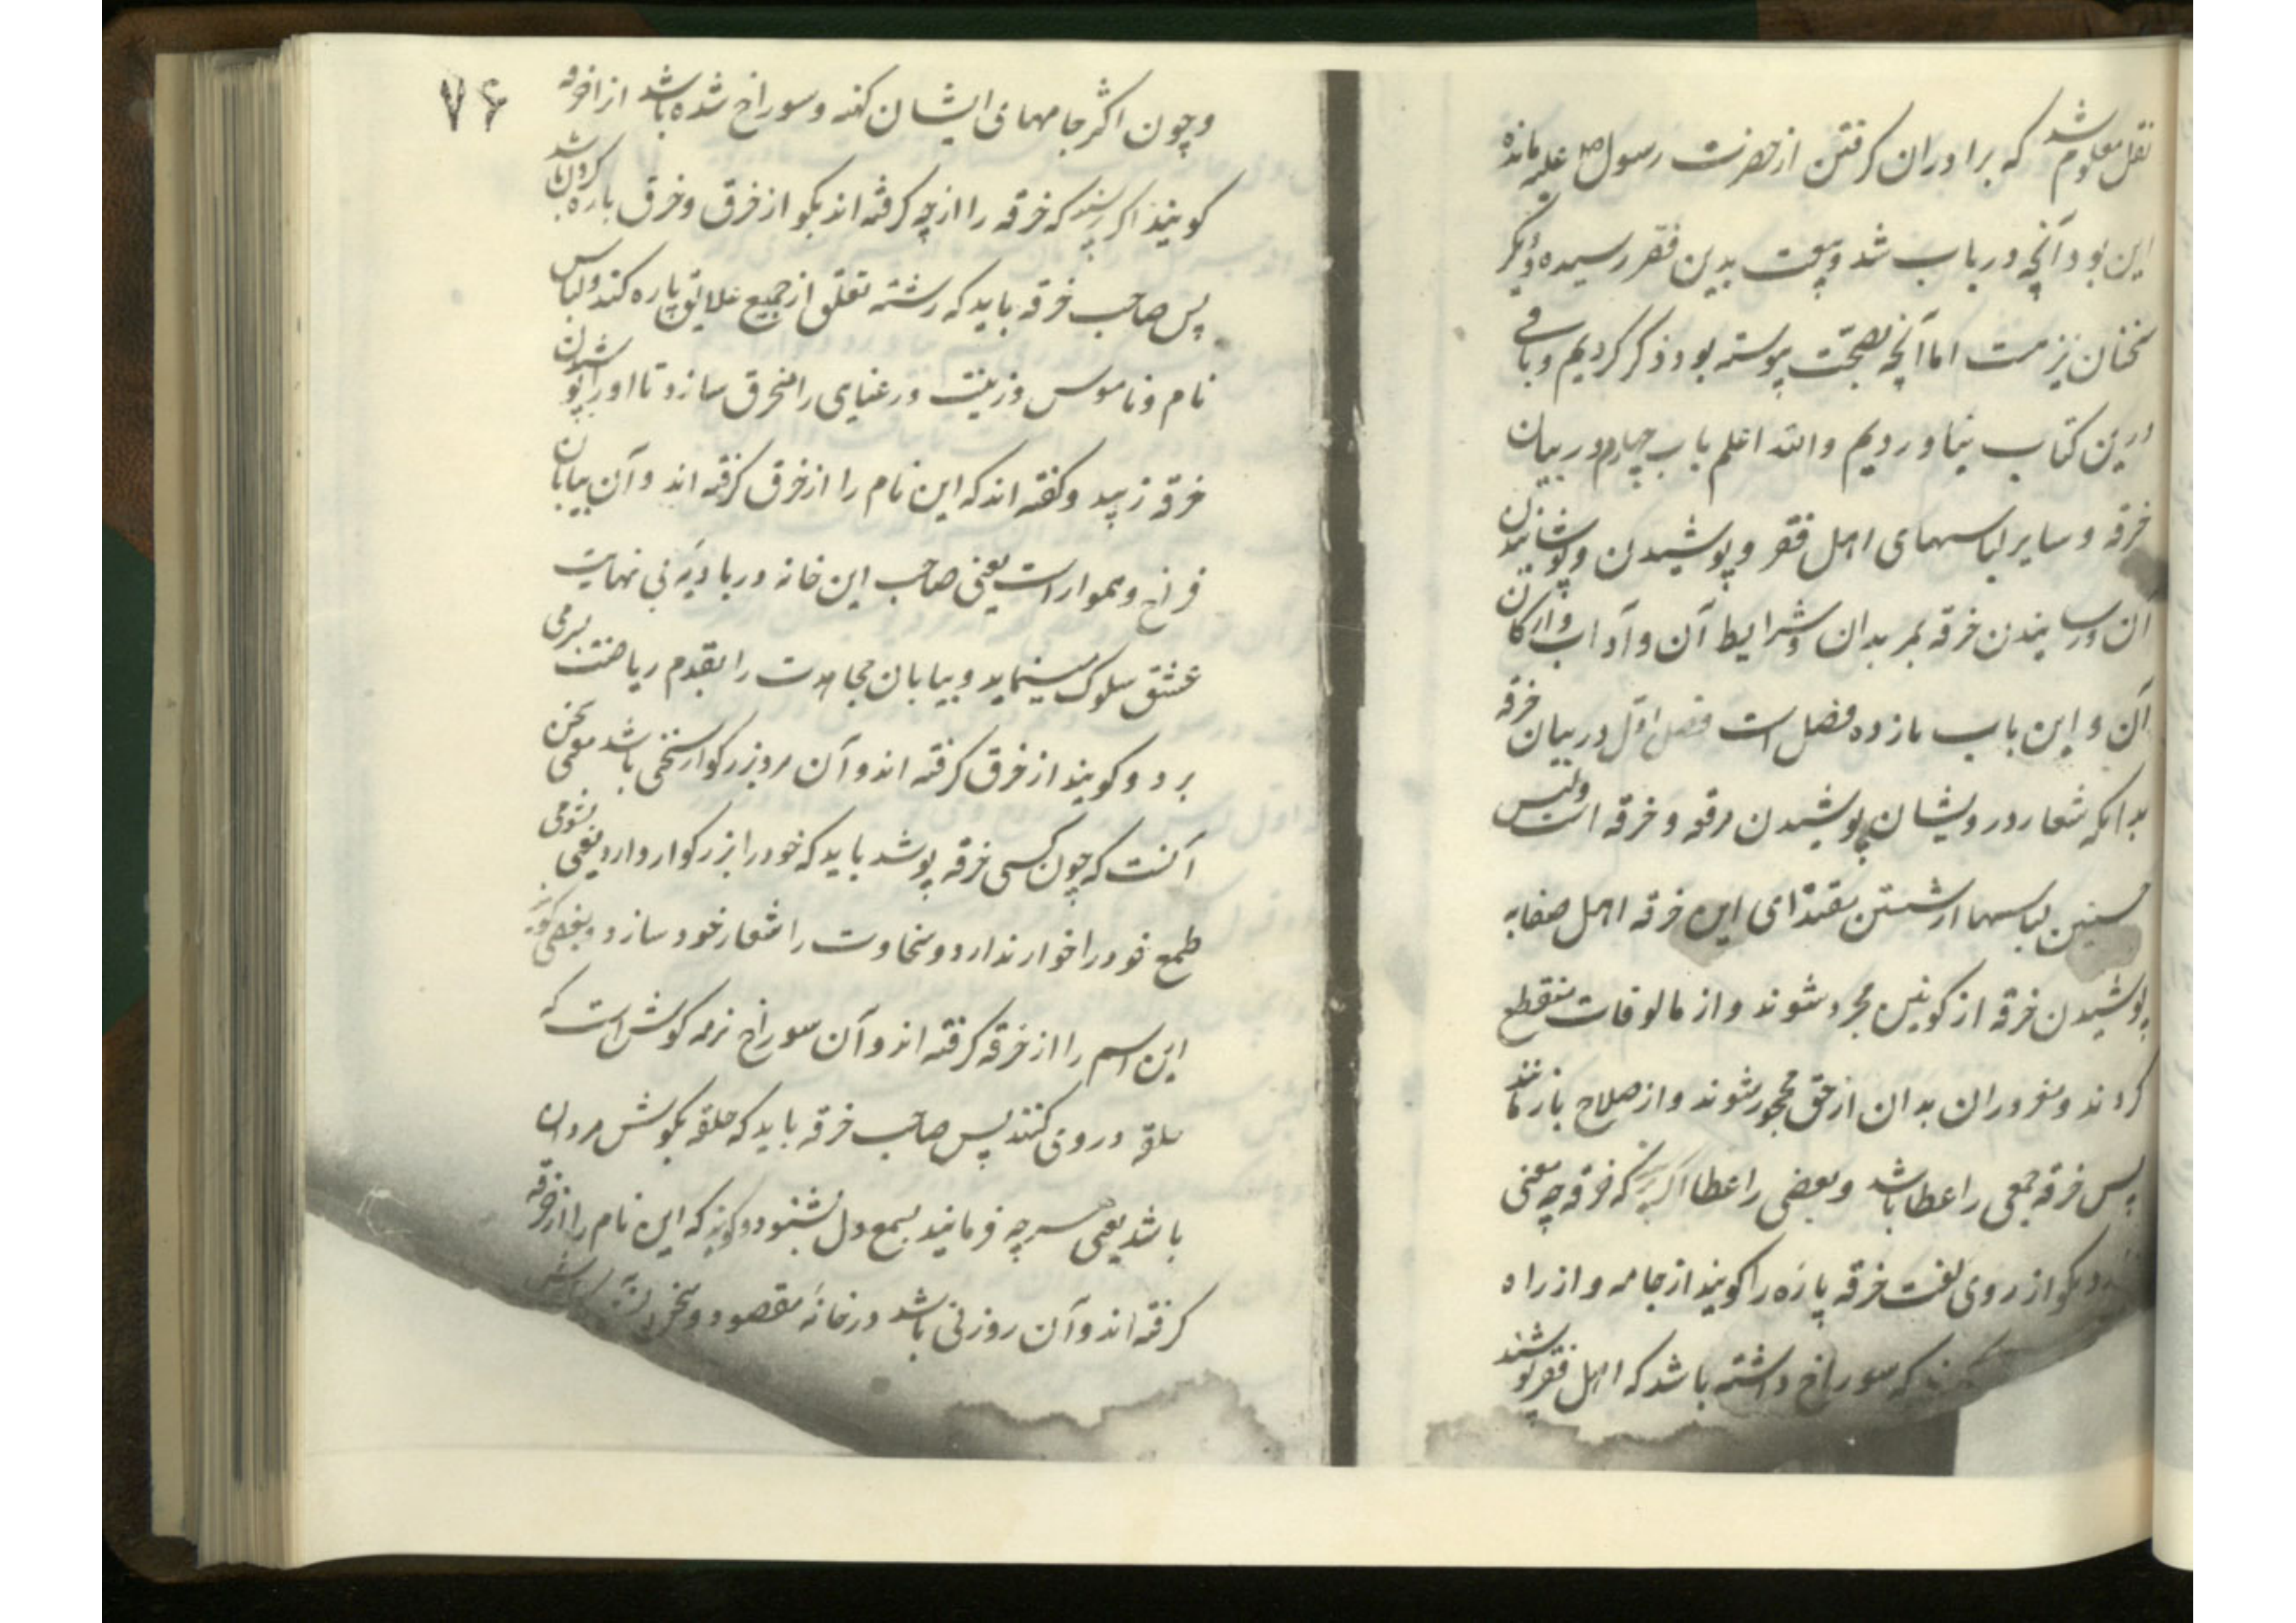 نقل معلوم شد که برادران کرفتن از حضرت رسول صلی علیه مانده
این بود آنچه در باب شد وبیعت بدین فقر رسیده ودیگر
سخنان نیز هست اما آنچه بصحت پیوسته بود ذکر کردیم وباقی
درین کتاب نیاوردیم والله اعلم باب چهارم در بیان
خرقه و سایر لباسهای اهل فقر و پوشیدن و پوشانیدن
آن ورسانیدن خرقه بمریدان وشرایط آن و آداب وارکان
آن و این باب یازده فصل است فصل اول در بیان خرقه
بدانکه شعار درویشان پوشیدن مرقع و خرقه است ولبس
لباسها ازشستن مقتدای این فرقه اهل صفا به
پوشیدن خرقه از کونین مجرد شوند و از مالوفات منقطع
کردند و مغروران بدان از حق محجور شوند و از صلاح بازمانند
پس خرقه جمعی را عطا باشد و بعضی را عطا اکر پرسند که خرقه چه معنی
دارد بکو از روی لغت خرقه پاره را کویند از جامه و از راه
که سوراخ داشته باشد که اهل فقر پوشند
۷۶
وچون اکثر جامهای ایشان کهنه و سوراخ شده باشد از اخرقه
کویند اکر پرسند که خرقه را از چه کرفته اند بکو از خرق و خرق پاره کردن باشد
پس صاحب خرقه باید که رشته تعلق از جمیع علایق پاره کند ولباس
نام و ناموس وزینت ورعنایی را منخرق سازد تا او را پوشیدن
خرقه زیبد وکفته اند که این نام را از خرق کرفته اند وآن بیابان
فراخ وهموار است یعنی صاحب این خانه در بادیهٔ بی نهایت
عشق سلوک مینماید و بیابان مجاهدت را بقدم ریاضت بسر می
برد و کویند از خرق کرفته اند و آن مرد بزرکوار سخی باشد معنی
آنست که چون کسی خرقه پوشد باید که خود را بزرکوار دارد یعنی بشومی
طمع خود را خوار ندارد و سخاوت را شعار خود سازد وبعضی کویند
این اسم را از خرقه کرفته اند و آن سوراخ نرمه کوش است که
حلقه در وی کنند پس صاحب خرقه باید که حلقه بکوش مردان
باشد یعنی هرچه فرمایند بسمع دل بشنود وکویند که این نام را از خرقه
کرفته اند و آن روزنی باشد در خانهٔ مقصود و مخزن